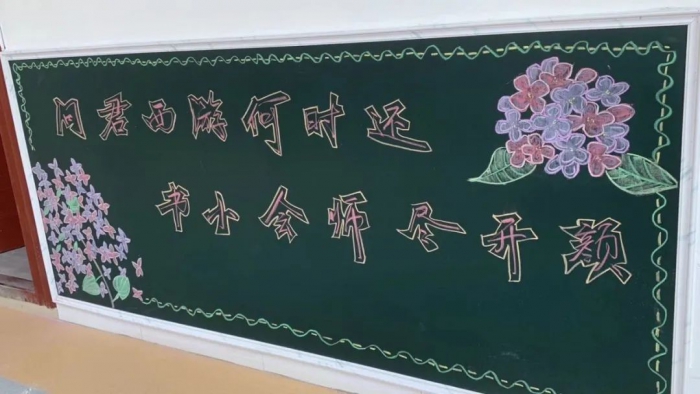 问君西游何时还
书小会师尽开颜